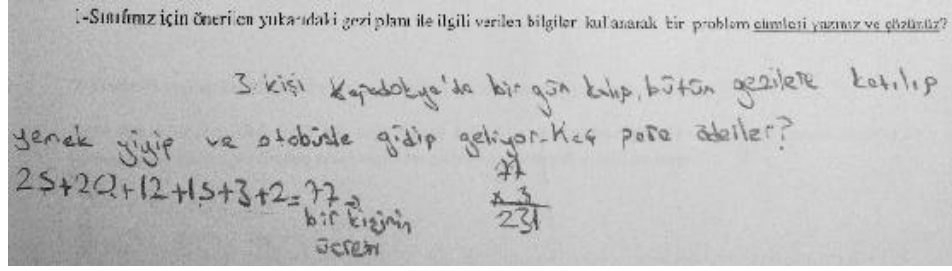 1-Sınıfımız için önerilen yukarıdaki gezi planı ile ilgili verilen bilgiler kullanarak bir problem cümlesi yazınız ve çözünüz?
3 kişi Kapadokya'da bir gün kalıp, bütün gezilere katılıp
yemek yiyip ve otobüsle gidip geliyor. Kaç para öderler?
25+20+12+15+3+2=77→
bir kişinin
ücreti
77
x 3
231